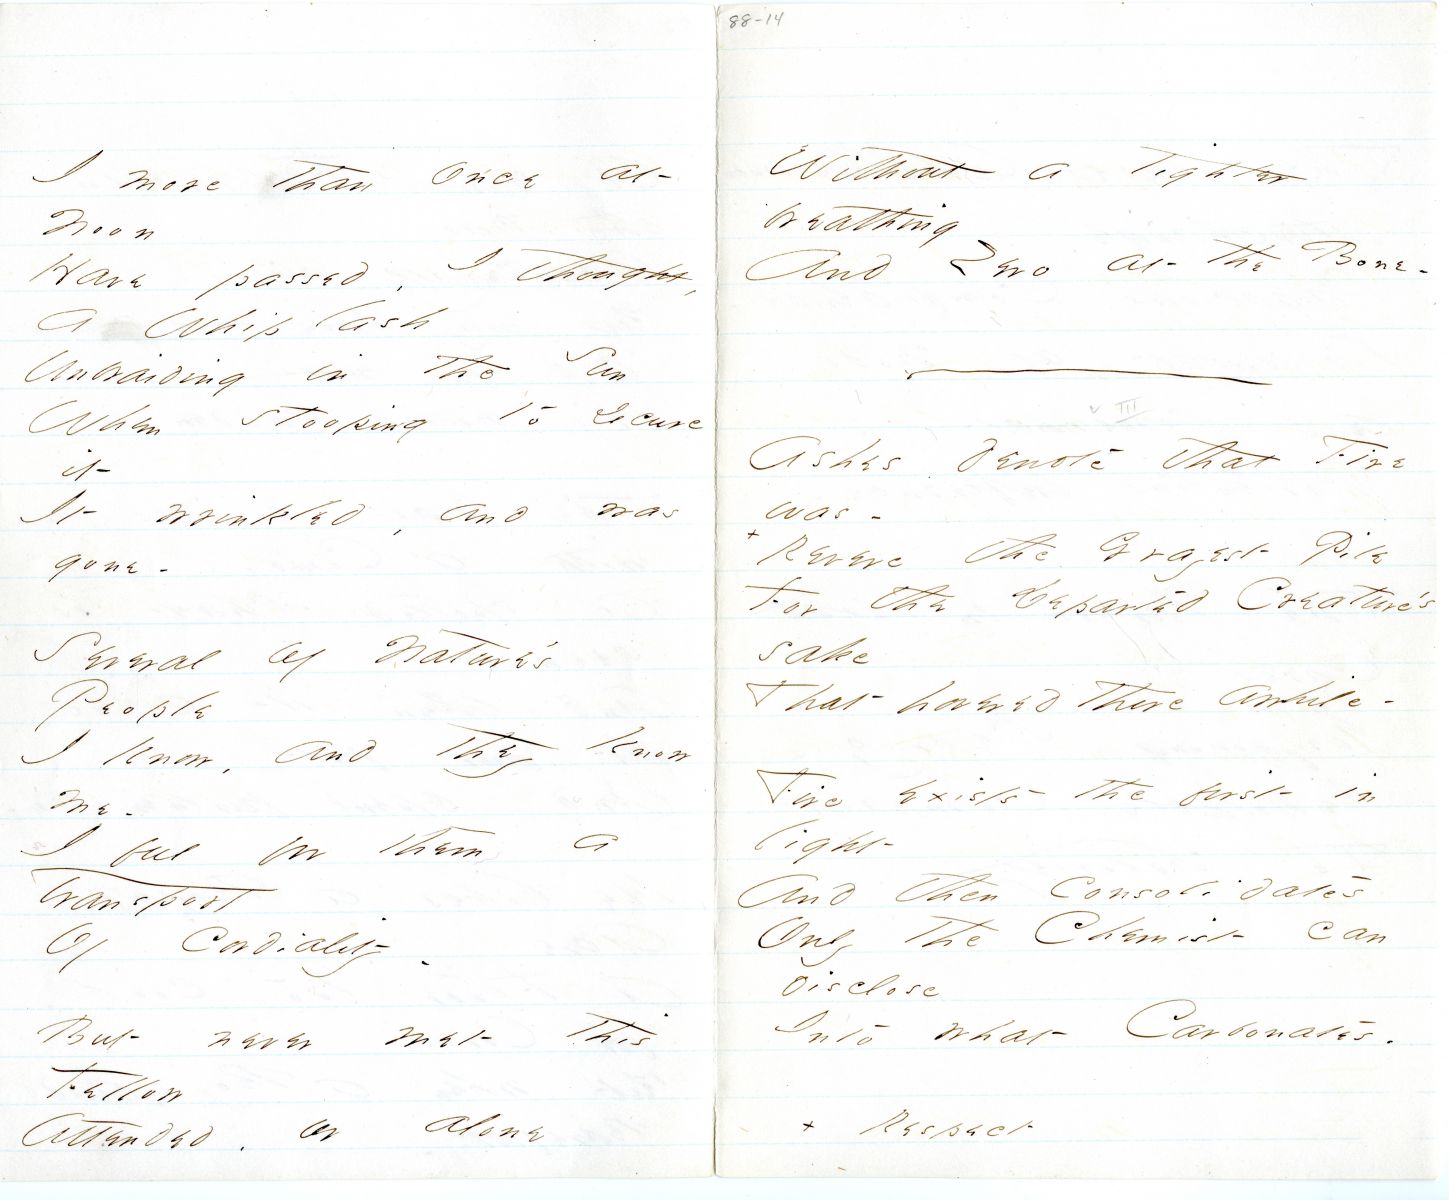 I more than Once at
Noon
Have passed, I thought,
A Whip lash
Unbraiding in the Sun
When stooping to secure
it
It wrinkled, and was
gone -
Several of Nature's
People
I know, and they know
me -
I feel for them a
transport
Of Cordiality -
But never met this
Fellow
Attended, or alone
88-14
Without a tighter
breathing
And Zero at the Bone -
v III
Ashes denote that Fire
was -
+ Revere the Grayest Pile
For the Departed Creature's
sake
That hovered there awhile -
Fire exists the first in
light
And then consolidates
Only the Chemist can
disclose
Into what Carbonates.
+ Respect